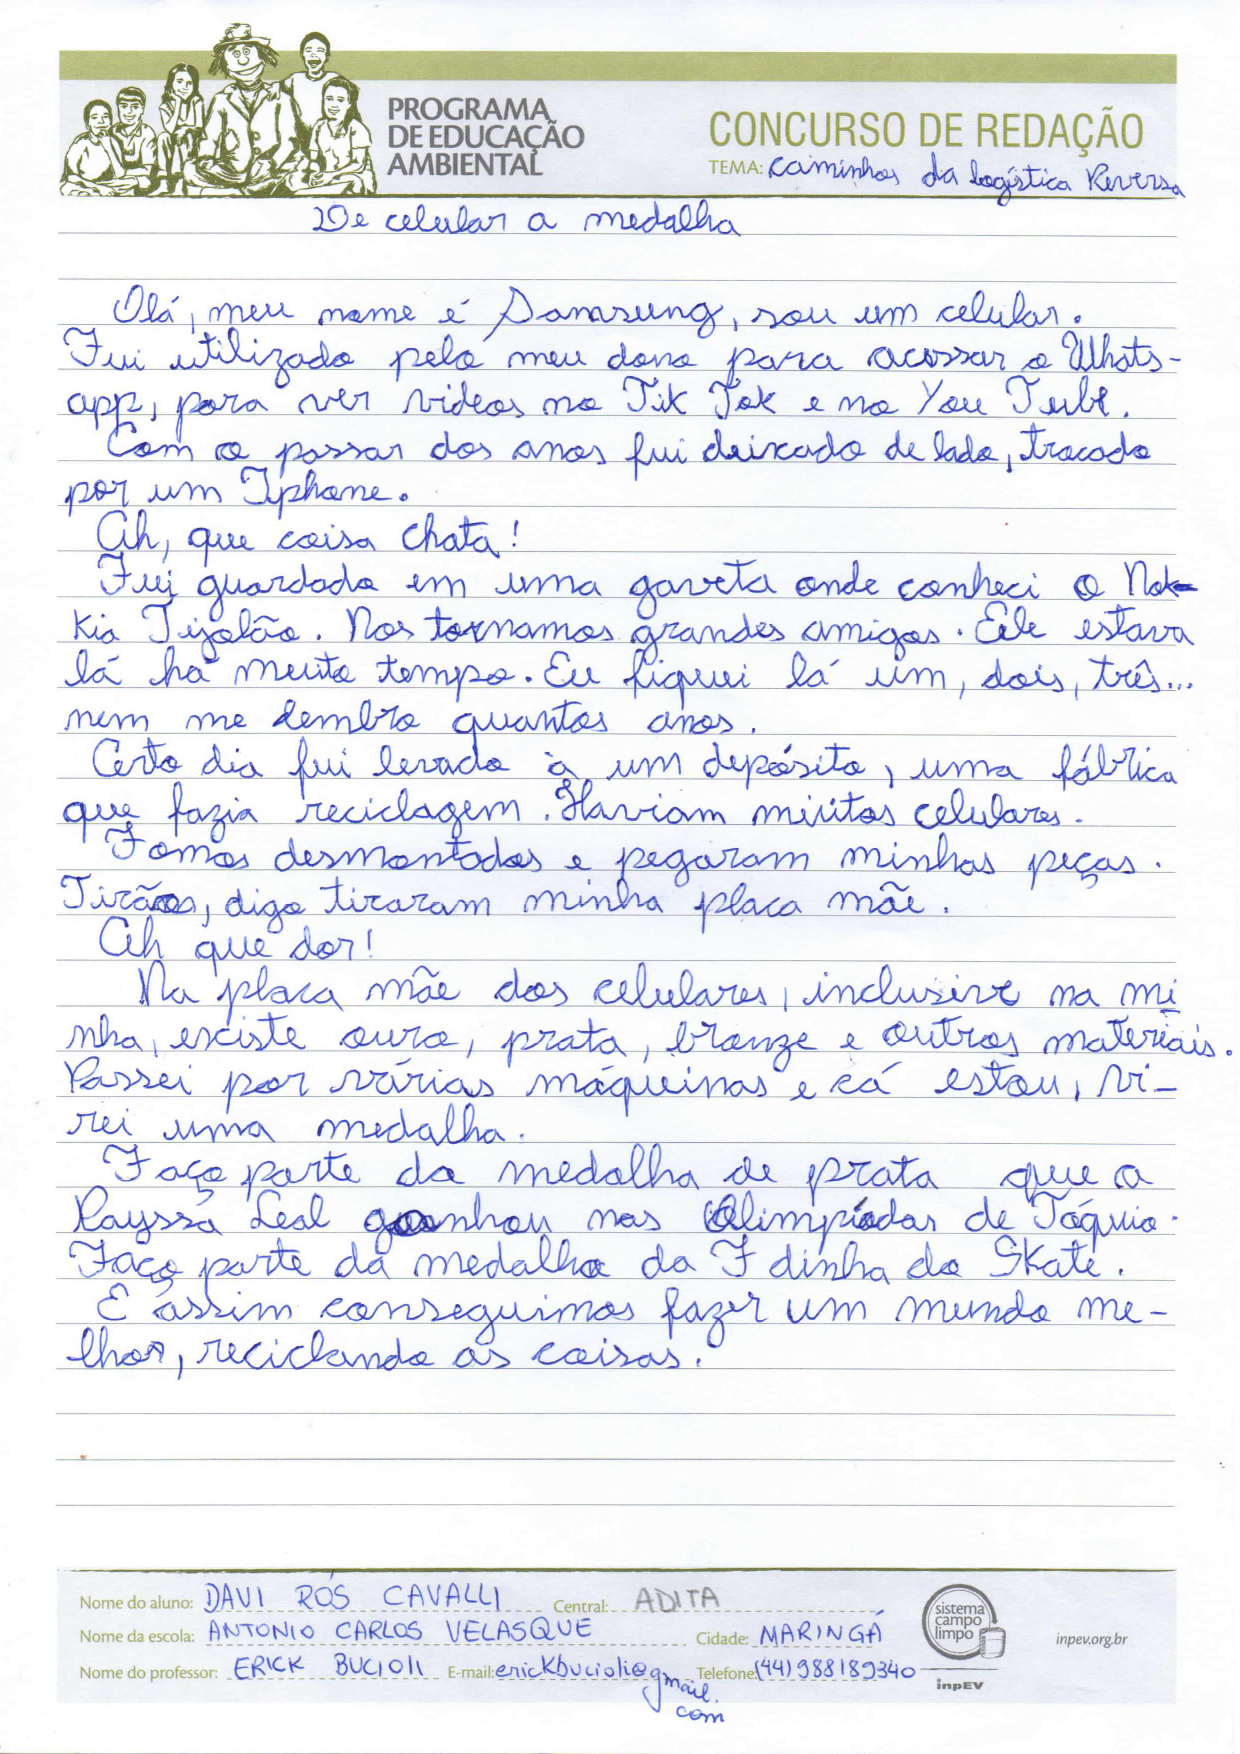 PROGRAMA
DE EDUCAÇÃO
AMBIENTAL
CONCURSO DE REDAÇÃO
TEMA: Caminhos da logística Reversa
De celular a medalha
Olá, meu nome é Samsung, sou um celular.
Fui utilizado pelo meu dono para acessar o Whats-
app, para ver videos no Tik Tok e no You Tube.
Com o passar dos anos fui deixado de lado, trocado
por um Iphone.
Ah, que coisa chata!
Fui guardado em uma gaveta onde conheci o Nok-
kia Tijolão. Nos tornamos grandes amigos. Ele estava
lá há muito tempo. Eu fiquei lá um, dois, três...
nem me lembro quantos anos.
Certo dia fui levado à um depósito, uma fábrica
que fazia reciclagem. Haviam muitos celulares.
Fomos desmontados e pegaram minhas peças.
Tirãos, digo tiraram minha placa mãe.
Ah que dor!
Na placa mãe dos celulares, inclusive na mi
nha, existe ouro, prata, bronze e outros materiais.
Passei por várias máquinas e cá estou, vi-
rei uma medalha.
Faço parte da medalha de prata que a
Rayssa Leal ganhou nas Olimpíadas de Tóquio.
Faço parte da medalha da Fdinha do Skate.
E assim conseguimos fazer um mundo me-
lhor, reciclando as coisas.
Nome do aluno: DAVI RÓS CAVALLI Central: ADITA
Nome da escola: ANTONIO CARLOS VELASQUE Cidade: MARINGÁ
Nome do professor: ERICK BUCIOLI E-mail: erickbucioli@gmail.com Telefone: (44) 988189340
sistema
campo
limpo
inpEV
inpev.org.br